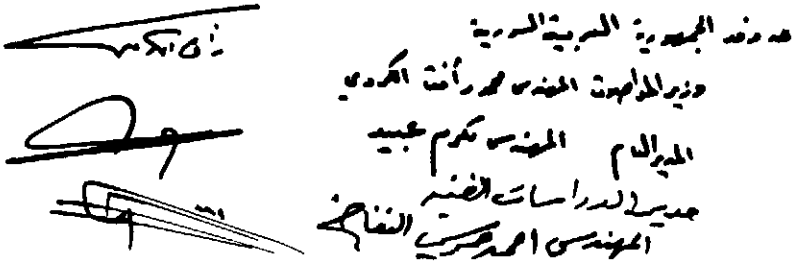 عن وفد الجمهورية العربية السورية
وزير المواصلات المهندس محمد رأفت الكردي
المدير العام المهندس مكرم عبيد
مدير الدراسات الفنية
المهندس احمد حرستي التفاخ